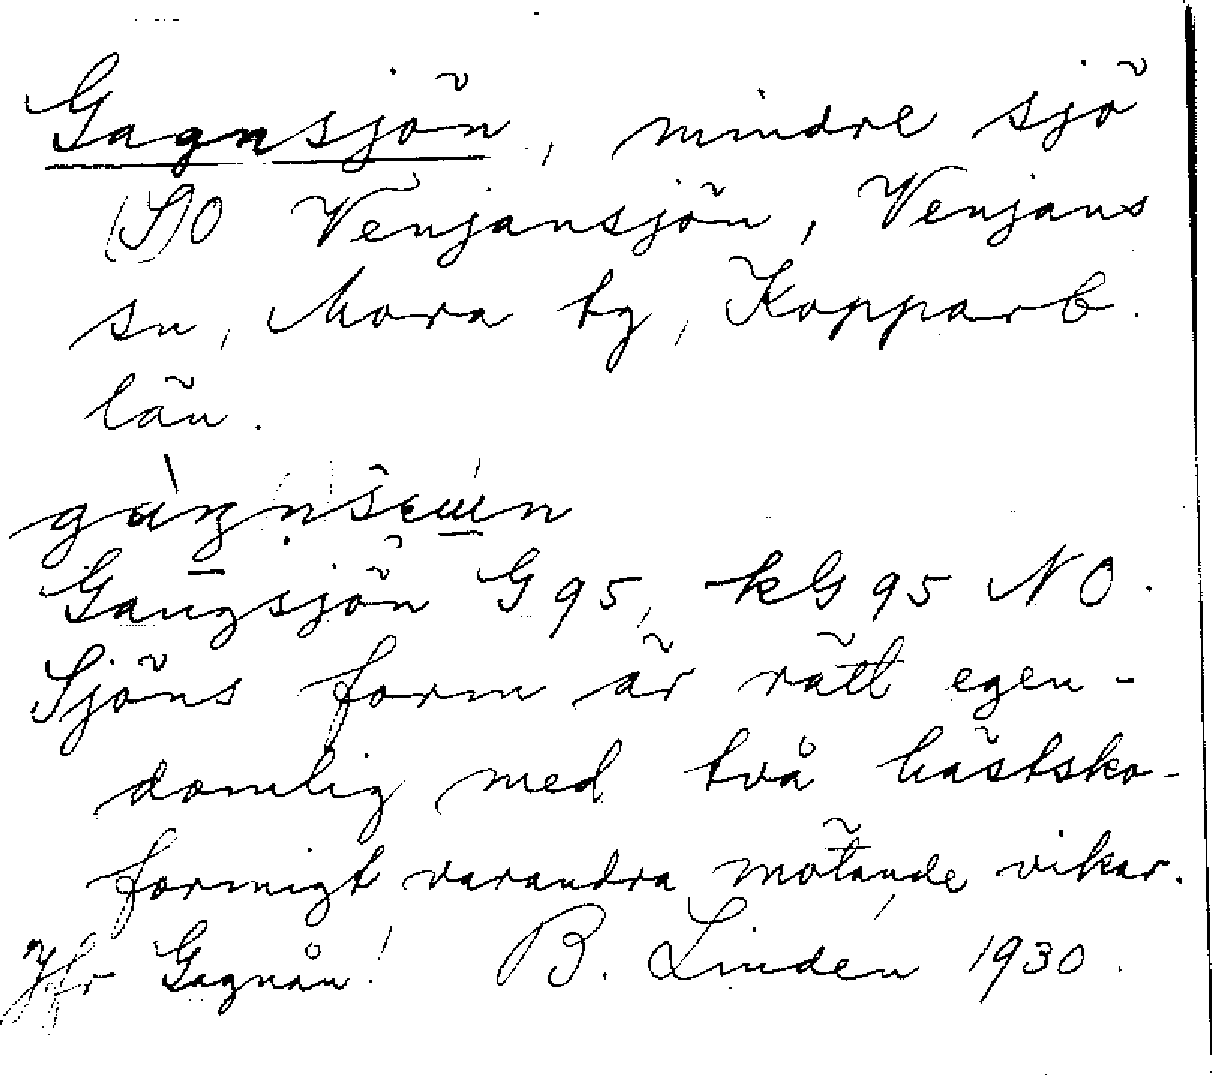 Gagnsjön, mindre sjö
(S)O Venjansjön, Venjans
sn, Mora tg, Kopparb.
län.
Gangsjön G95, kG95 NO.
Sjöns form är rätt egen-
domlig med två hästsko-
formigt varandra mötande vikar.
Jfr Gagnån! B. Lindén 1930.